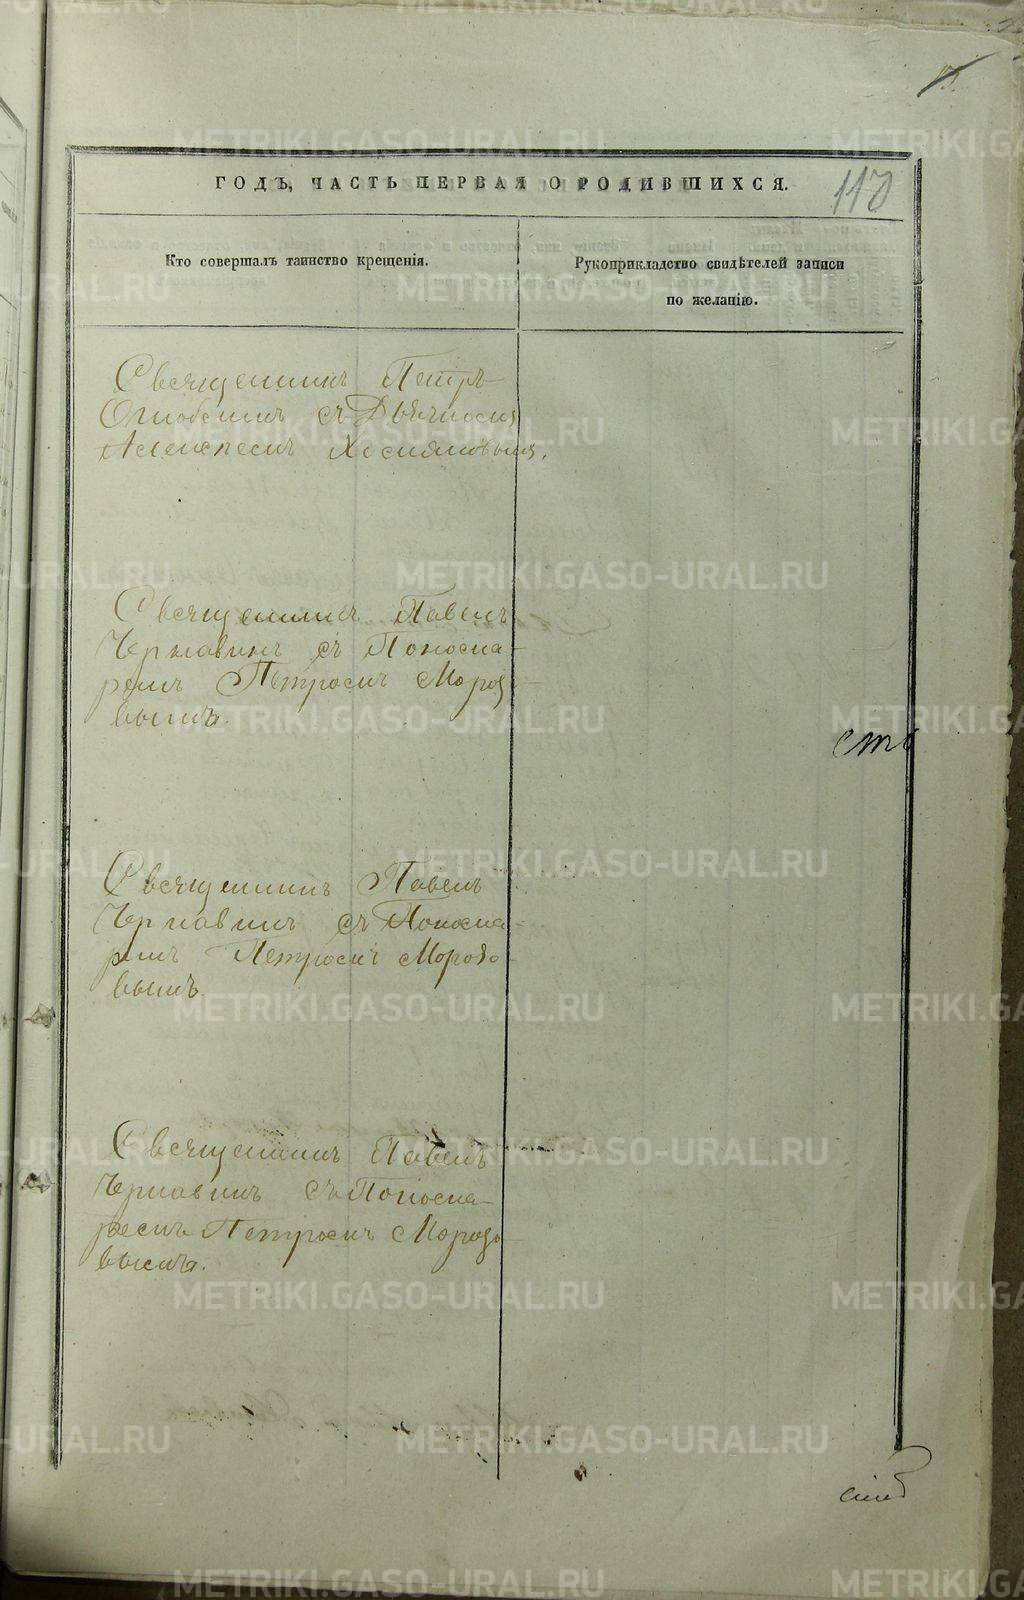 110
ГОДЪ, ЧАСТЬ ПЕРВАЯ О РОДИВШИХСЯ.
Кто совершалъ таинство крещенія.
Рукоприкладство свидѣтелей записи
по желанію.
Священникъ Петръ
съ
Алексѣемъ
Священникъ Павелъ
Чернавинъ съ Понома-
ремъ Петромъ Морозо-
вымъ.
Священникъ Павелъ
Чернавинъ съ Понома-
ремъ Петромъ Морозо-
вымъ.
Священникъ Павелъ
Чернавинъ съ Понома-
ремъ Петромъ Морозо-
вымъ.
METRIKI.GASO-URAL.RU